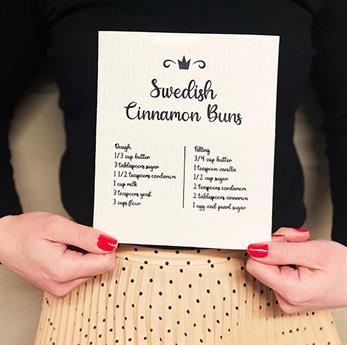 Swedish
Cinnamon Buns
Dough
1/3 cup butter
3 tablespoons sugar
1 1/2 teaspoons cardamom
1 cup milk
3 teaspoons yeast
3 cups flour
Filling
3/4 cup butter
1 teaspoon vanilla
1/2 cup sugar
2 teaspoons cardamom
2 tablespoons cinnamon
1 egg and pearl sugar